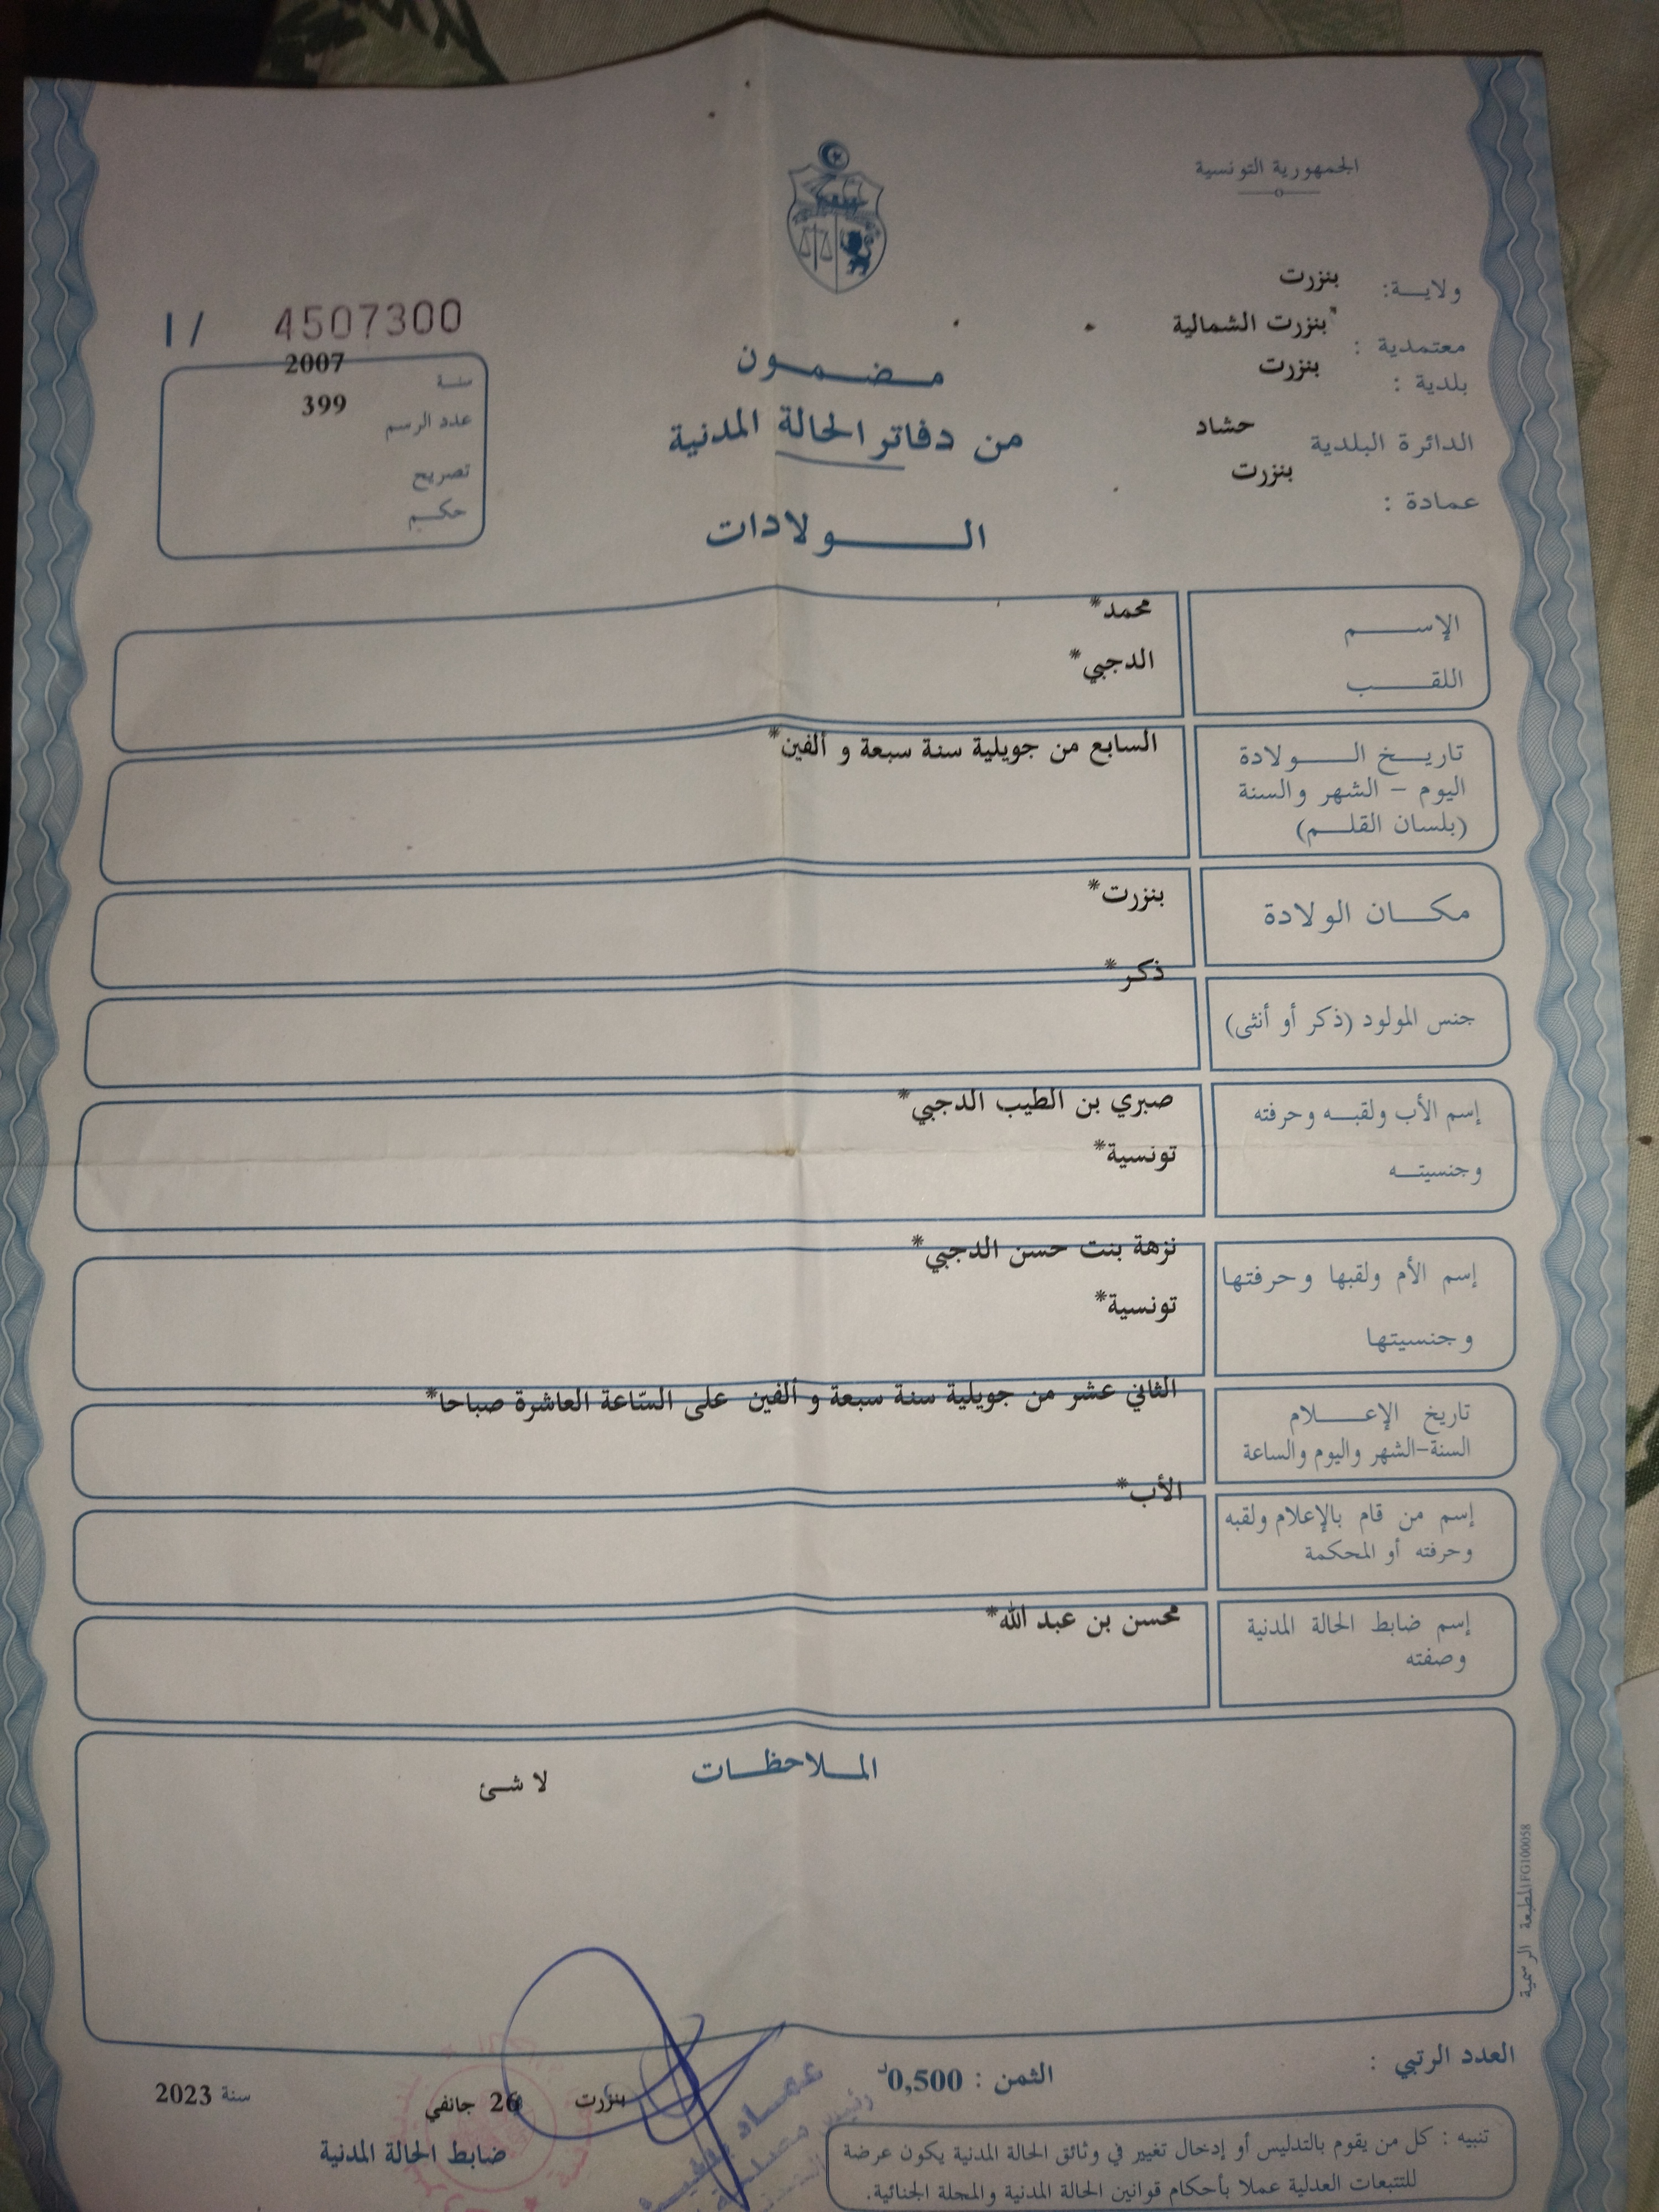 الجمهورية التونسية
ولايـــة: بنزرت
معتمدية : بنزرت الشمالية
بلدية : بنزرت
الدائرة البلدية حشاد
عمادة : بنزرت
مـضـمـون
من دفاتر الحالة المدنية
الـولادات
I / 4507300
سنة 2007
عدد الرسم 399
تصريح
حكم
الإسم محمد*
اللقب الدجبي*
تاريخ الولادة السابع من جويلية سنة سبعة و ألفين*
اليوم - الشهر والسنة
(بلسان القلم)
مكان الولادة بنزرت*
جنس المولود (ذكر أو أنثى) ذكر*
إسم الأب ولقبه وحرفته صبري بن الطيب الدجبي*
وجنسيته تونسية*
إسم الأم ولقبها وحرفتها نزهة بنت حسن الدجبي*
وجنسيتها تونسية*
تاريخ الإعلام الثاني عشر من جويلية سنة سبعة و ألفين على السّاعة العاشرة صباحا*
السنة-الشهر واليوم والساعة
إسم من قام بالإعلام ولقبه الأب*
وحرفته أو المحكمة
إسم ضابط الحالة المدنية محسن بن عبد الله*
وصفته
الملاحظات
لا شئ
المطبعة الرسمية FG100058
العدد الرتبي :
الثمن : 0,500د
بنزرت 26 جانفي سنة 2023
ضابط الحالة المدنية
عماد
رئيس مصلحة
تنبيه : كل من يقوم بالتدليس أو إدخال تغيير في وثائق الحالة المدنية يكون عرضة
للتتبعات العدلية عملا بأحكام قوانين الحالة المدنية والمجلة الجنائية.